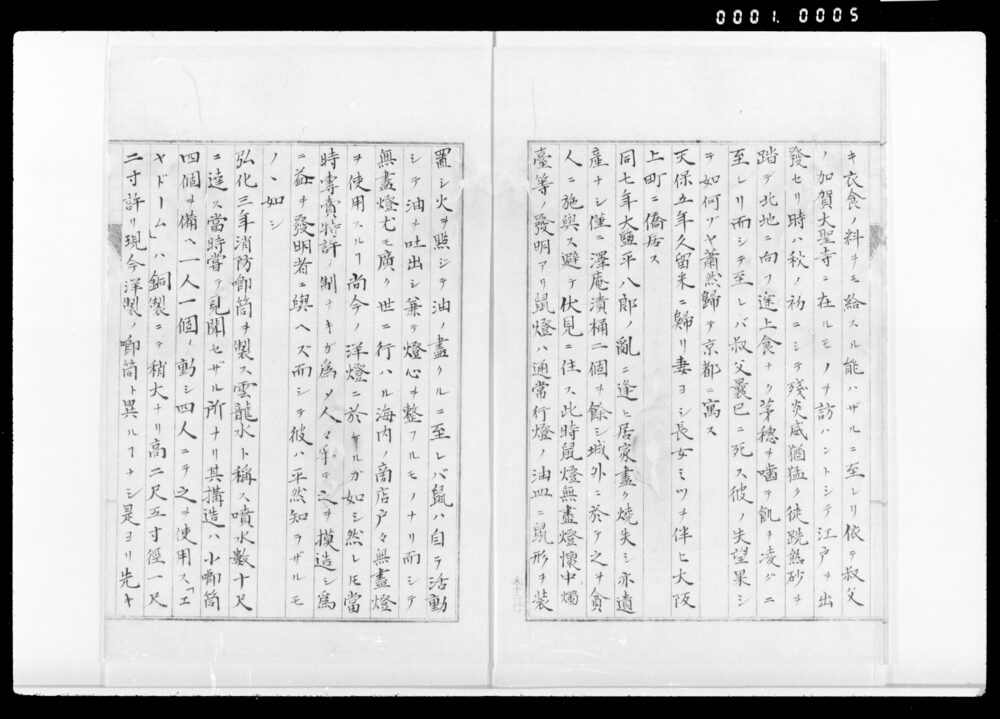 0001.0005
キ衣食ノ料ヲモ給スル能ハザルニ至レリ依テ叔父
ノ加賀大聖寺ニ在ルモノヲ訪ハントシテ江戸ヲ出
發セリ時ハ秋ノ初ニシテ殘炎威猶猛ク徒跣熱砂ヲ
踏デ北地ニ向フ途上食ナク茅穂ヲ嚙デ飢ヲ凌グニ
至レリ而シテ至レバ叔父曩已ニ死ス彼ノ失望果シ
テ如何ゾヤ蕭然歸テ京都ニ寓ス
天保五年久留米ニ歸リ妻ヨシ長女ミツヲ伴ヒ大阪
上町ニ僑居ス
同七年大鹽平八郎ノ亂ニ逢ヒ居家盡ク燒失シ亦遺
産ナシ僅ニ澤庵漬桶二個ヲ餘シ城外ニ於テ之ヲ貧
人ニ施與ス避テ伏見ニ住ス此時鼠燈無盡燈懷中燭
臺等ノ發明アリ鼠燈ハ通常行燈ノ油皿ニ鼠形ヲ装
置シ火ヲ點シテ油ノ盡クルニ至レバ鼠ハ自ラ活動
シテ油ヲ吐出シ兼テ燈心ヲ整フルモノナリ而シテ
無盡燈尤モ廣ク世ニ行ハル海内ノ商店戸々無盡燈
ヲ使用スルヿ尚今ノ洋燈ニ於ケルガ如シ然レモ當
時專賣特許ノ制ナキガ爲メ人々争テ之ヲ摸造シ爲
ニ益ヲ發明者ニ與ヘズ而シテ彼ハ平然知ラザルモ
ノヽ如シ
弘化三年消防喞筒ヲ製ス雲龍水ト稱ス噴水數十尺
ニ達ス當時嘗テ見聞セザル所ナリ其搆造ハ小喞筒
四個ヲ備ヘ一人一個ヲ動シ四人ニテ之ヲ使用ス「エ
ヤドーム」ハ銅製ニテ稍大ナリ高二尺五寸徑一尺
二寸許リ現今洋製ノ喞筒ト異ルヿナシ是ヨリ先キ